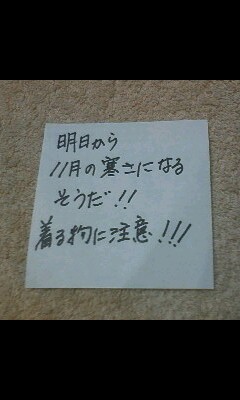 明日から
11月の寒さになる
そうだ!!
着る物に注意!!!